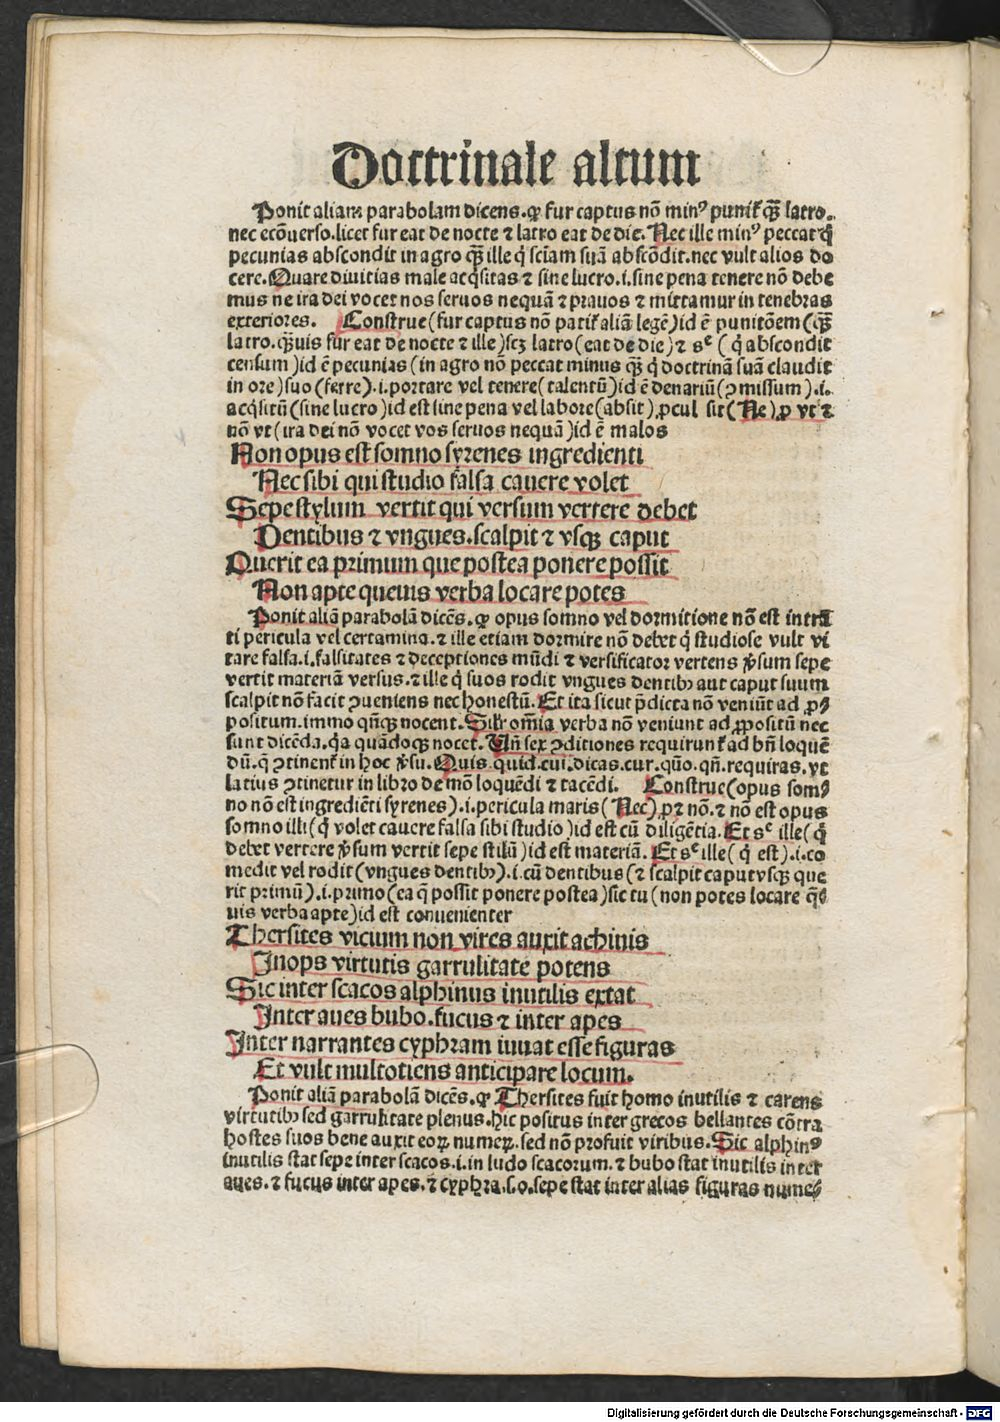 Doctrinale altum
Ponit aliam parabolam dicens. ꝙ fur captus nō minꝰ punit᷑ qȝ latro.
nec ecōuerso. licet fur eat de nocte ⁊ latro eat de die. Nec ille minꝰ peccat q̇
pecunias abscondit in agro qȝ ille q̇ sciam suā abscōdit. nec vult alios do
cere. Quare diuitias male acq̇sitas ⁊ sine lucro .i. sine pena tenere nō debe
mus ne ira dei vocet nos seruos nequā ⁊ prauos ⁊ mittamur in tenebras
exteriores. Construe (fur captus nō patit᷑ aliā legē) id ē punitōem (qȝ
latro. qȝuis fur eat de nocte ⁊ ille) scȝ latro (eat de die) ⁊ sᶜ (q̇ abscondit
censum) id ē pecunias (in agro nō peccat minus qȝ q̇ doctrinā suā claudit
in ore) suo (ferre) .i. portare vel tenere (talentū) id ē denariū (ꝯmissum) .i.
acq̇sitū (sine lucro) id est sine pena vel labore (absit) ꝓcul sit (Ne) ꝓ vt ⁊
nō vt (ira dei nō vocet vos seruos nequā) id ē malos
Non opus est somno syrenes ingredienti
Nec sibi qui studio falsa cauere volet
Sepe stylum vertit qui versum vertere debet
Dentibus ⁊ vngues. scalpit ⁊ vsqȝ caput
Querit ea primum que postea ponere possit
Non apte queuis verba locare potes
Ponit aliā parabolā dicēs. ꝙ opus somno vel dormitione nō est intrā
ti pericula vel certamina. ⁊ ille etiam dormire nō debet q̇ studiose vult vi
tare falsa .i. falsitates ⁊ deceptiones mūdi ⁊ versificator vertens ꝟsum sepe
vertit materiā versus. ⁊ ille q̇ suos rodit vngues dentibꝫ aut caput suum
scalpit nō facit ꝯueniens nec honestū. Et ita sicut p̄dicta nō veniūt ad ꝓ
positum. immo qn̄qȝ nocent. Silr omīa verba nō veniunt ad ꝓpositū nec
sunt dicēda. q̇a quādoqȝ nocet. Vn̄ sex ꝯditiones requirunt᷑ ad bn̄ loquē
dū. q̄ ꝯtinent᷑ in hoc ꝟsu. Quis. quid. cui. dicas. cur. quo. qn̄. requiras. vt
latius ꝯtinetur in libro de mō loquēdi ⁊ tacēdi. Construe (opus som
no nō est ingrediēti syrenes) .i. pericula maris (Nec) ꝓ ⁊ nō. ⁊ nō est opus
somno illi (q̇ volet cauere falsa sibi studio) id est cū diligētia. Et sᶜ ille (q̇
debet vertere ꝟsum vertit sepe stilū) id est materiā. Et sᶜ ille (q̇ est) .i. co
medit vel rodit (vngues dentibꝫ) .i. cū dentibus (⁊ scalpit caput vsqȝ que
rit primū) .i. primo (ea q̄ possit ponere postea) sic tu (non potes locare q̄
uis verba apte) id est conuenienter
Thersites vicum non vires auxit achinis
Inops virtutis garrulitate potens
Sic inter scacos alphinus inutilis extat
Inter aues bubo. fucus ⁊ inter apes
Inter narrantes cyphram iuuat esse figuras
Et vult multotiens anticipare locum.
Ponit aliā parabolā dicēs. ꝙ Thersites fuit homo inutilis ⁊ carens
virtutibꝫ sed garrulitate plenus. hic positus inter grecos bellantes cōtra
hostes suos bene auxit eoꝝ numeꝝ. sed nō profuit viribus. Sic alphinꝰ
inutilis stat sepe inter scacos .i. in ludo scacorum. ⁊ bubo stat inutilis inter
aues. ⁊ fucus inter apes. ⁊ cyphra .s. o. sepe stat inter alias figuras nume
Digitalisierung gefördert durch die Deutsche Forschungsgemeinschaft - DFG